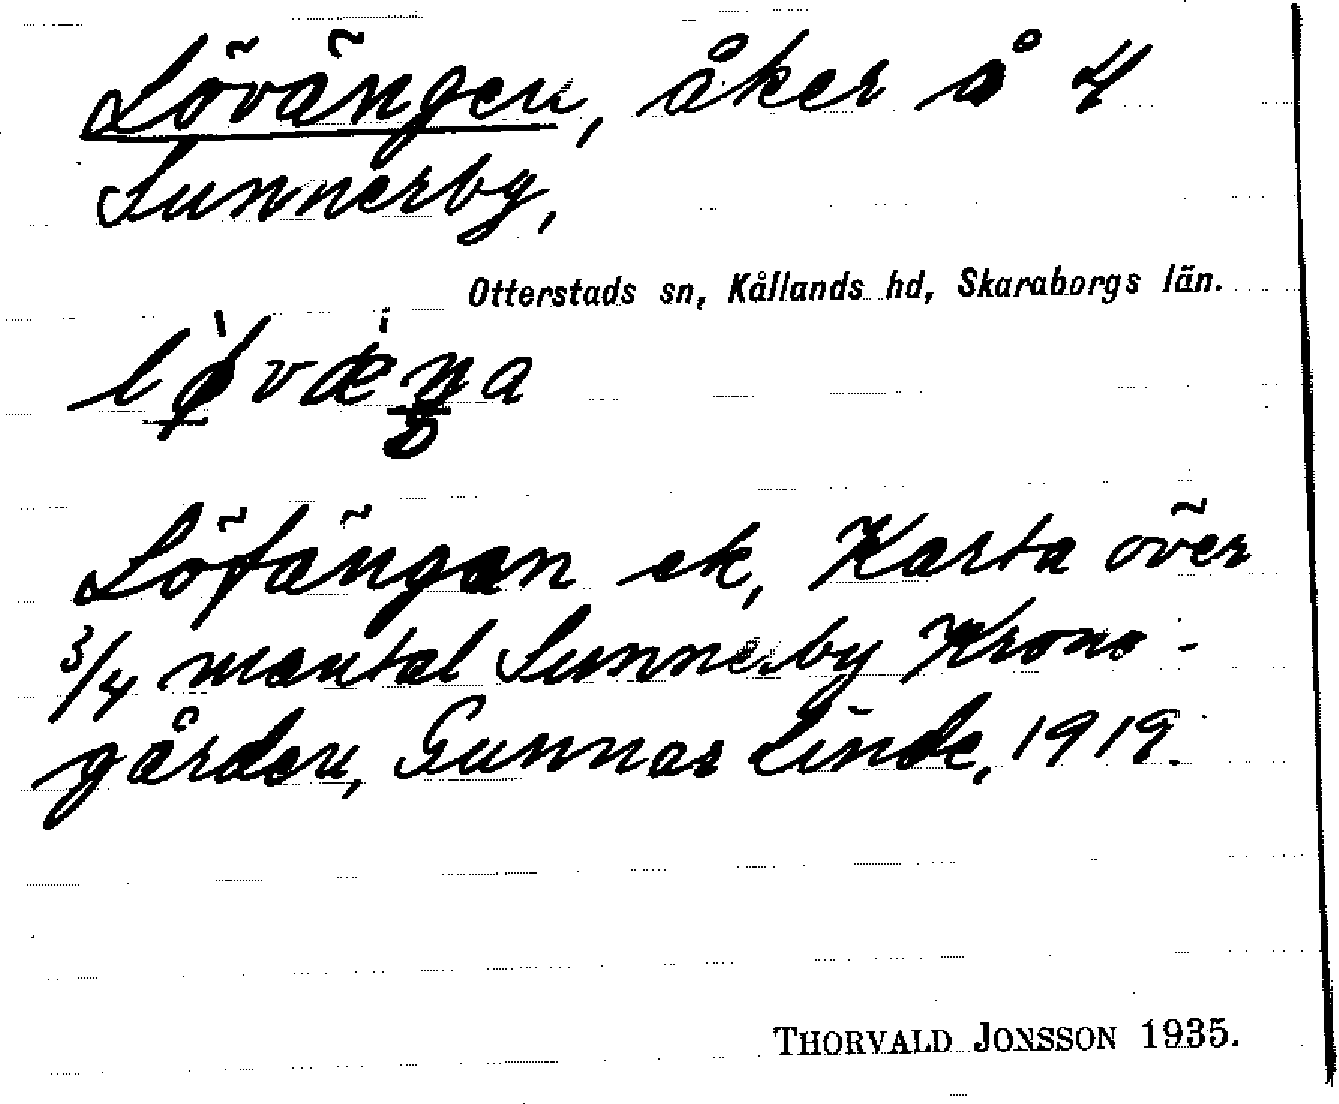 Lövängen, åker å 4
Sunnerby,
Otterstads sn, Kållands hd, Skaraborgs län.
Löfängan ek, Karta över
3/4 mantal Sunnerby Krono-
gården, Gunnar Linde, 1919.
THORVALD JONSSON 1935.